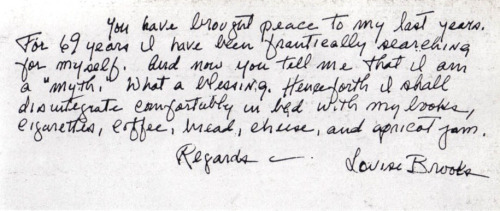 You have brought peace to my last years.
For 69 years I have been frantically searching
for myself. And now you tell me that I am
a "myth." What a blessing. Henceforth I shall
disintegrate comfortably in bed with my books,
cigarettes, coffee, bread, cheese, and apricot jam.
Regards — Louise Brooks